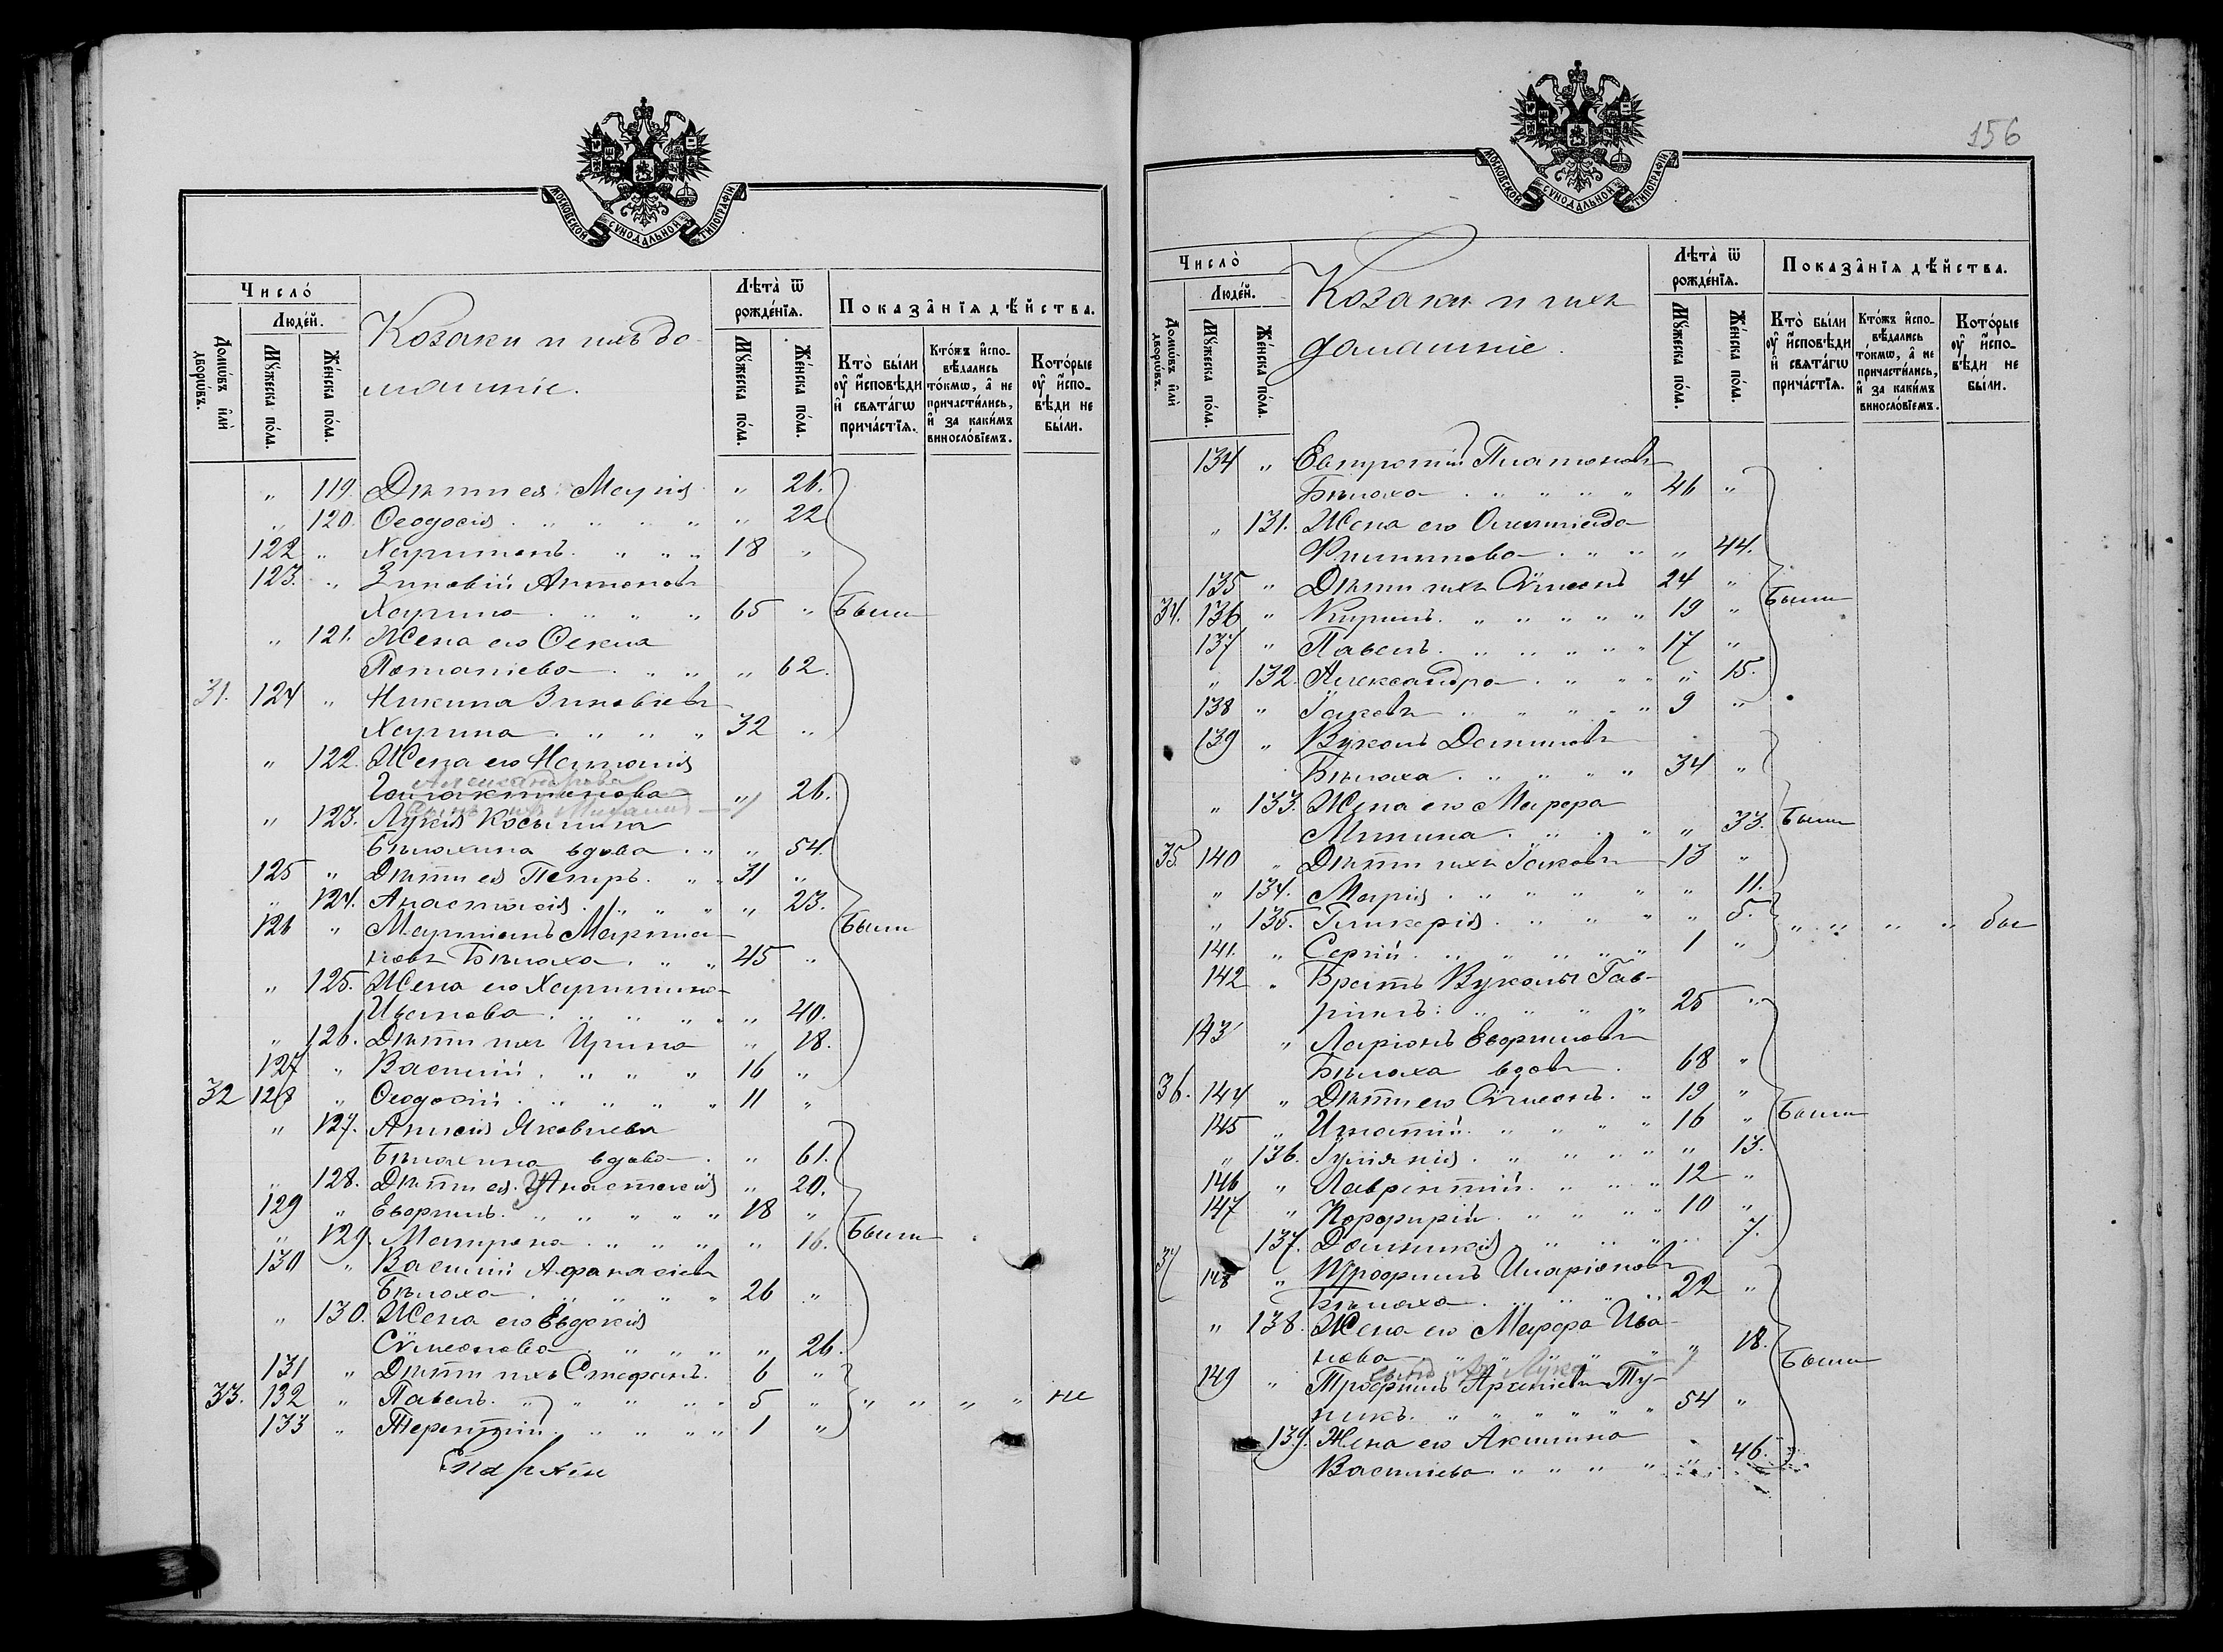 МОСКОВСКОЙ СѴНОДАЛЬНОЙ ТИПОГРАФІИ
Число̀
Людéй.
Домѡ́въ и҆лѝ дворѡ́въ.
Мꙋ́жеска по́ла.
Же́нска по́ла.
Козаки и ихъ до-
машніе.
Лѣ́та ѿ рожде́нїѧ.
Мꙋ́жеска по́ла.
Же́нска по́ла.
Показа̂нїѧ дѣ́йства.
Кто̀ бы́ли ᲂу҆ и҆сповѣ́ди и҆ свѧта́гѡ прича́стїѧ.
Кто́жъ и҆сповѣ́дались то́кмѡ, а҆ не причасти́лись, и҆ за каки́мъ винословїемъ.
Кото́рые ᲂу҆ и҆сповѣ́ди не бы́ли.
„ 119. Дѣти ея: Марія „ 26.
„ 120. Ѳеодосія „ 22
122 „ Харитонъ 18 „
123. „ Зиновій Антоновъ
Харина 65 „ Были
„ 121. Жена его Ѳекла
Потапіева „ 62.
31. 124 „ Никита Зиновіевъ
Харина 32 „
„ 122. Жена его Наталія
Александрова
„ 26.
„ 123. Лукія Косьмина
Бѣлохина вдова „ 54.
125 „ Дѣти ея Петръ 31 „
„ 124. Анастасія „ 23.
126 „ Мартинъ Марти-
новъ Бѣлоха 45 „ Были
„ 125. Жена его Харитина
Иванова „ 40.
„ 126. Дѣти ихъ Ирина „ 18.
127 „ Василій 16 „
32 128 „ Ѳеодосій 11 „
„ 127. Анисія Яковлева
Бѣлохина вдова „ 61.
„ 128. Дѣти ея: Анастасія „ 20.
129 „ Евфимъ 18 „
„ 129. Матрона „ 16. Были
130 „ Василій Аѳанасіевъ
Бѣлоха 26 „
„ 130. Жена его Евдокія
Сѵмеонова „ 26.
131 „ Дѣти ихъ Стефанъ 6 „
33. 132 „ Павелъ 5 „ „ „ „ „ не
133 „ Терентій 1 „
156
МОСКОВСКОЙ СѴНОДАЛЬНОЙ ТИПОГРАФІИ
Число̀
Людéй.
Домѡ́въ и҆лѝ дворѡ́въ.
Мꙋ́жеска по́ла.
Же́нска по́ла.
Козаки и ихъ
домашніе.
Лѣ́та ѿ рожде́нїѧ.
Мꙋ́жеска по́ла.
Же́нска по́ла.
Показа̂нїѧ дѣ́йства.
Кто̀ бы́ли ᲂу҆ и҆сповѣ́ди и҆ свѧта́гѡ прича́стїѧ.
Кто́жъ и҆сповѣ́дались то́кмѡ, а҆ не причасти́лись, и҆ за каки́мъ винословїемъ.
Кото́рые ᲂу҆ и҆сповѣ́ди не бы́ли.
134 „ Евтропій Платоновъ
Бѣлоха 46 „
„ 131. Жена его Олимпіада
Филиппова „ 44.
135 „ Дѣти ихъ Сѵмеонъ 24 „
34. 136 „ Кирилъ 19 „ Были
137 „ Павелъ 17 „
„ 132. Александра „ 15.
138 „ Іаковъ 9 „
139 „ Вуколъ Даниловъ
Бѣлоха 34 „
„ 133. Жена его Марѳа
Митина „ 33. Были
35 140 „ Дѣти ихъ Іаковъ 13 „
„ 134. Марія „ 11.
„ 135. Гликерія „ 5. „ „ „ „ бы
141. „ Сергій 1 „
142 „ Братъ Вуколы Гав-
ріилъ: 25 „
143 „ Ларіонъ Евфимовъ
Бѣлоха вдовъ 68 „
36. 144 „ Дѣти его Сѵмеонъ 19 „
145 „ Игнатій 16 „ Были
„ 136. Іуліянія „ 13.
146 „ Лаврентій 12 „
147 „ Порфирій 10 „
137. Домникія 7.
37 148 „ Трофимъ Иларіоновъ
Бѣлоха 22 „
„ 138. Жена его Марѳа Ива-
нова „ 18.
сынъ их Лука
149 „ Трофимъ Архиповъ Ту-
пикъ 54 „ Были
139. Жена его Акилина
Василіева „ 46.